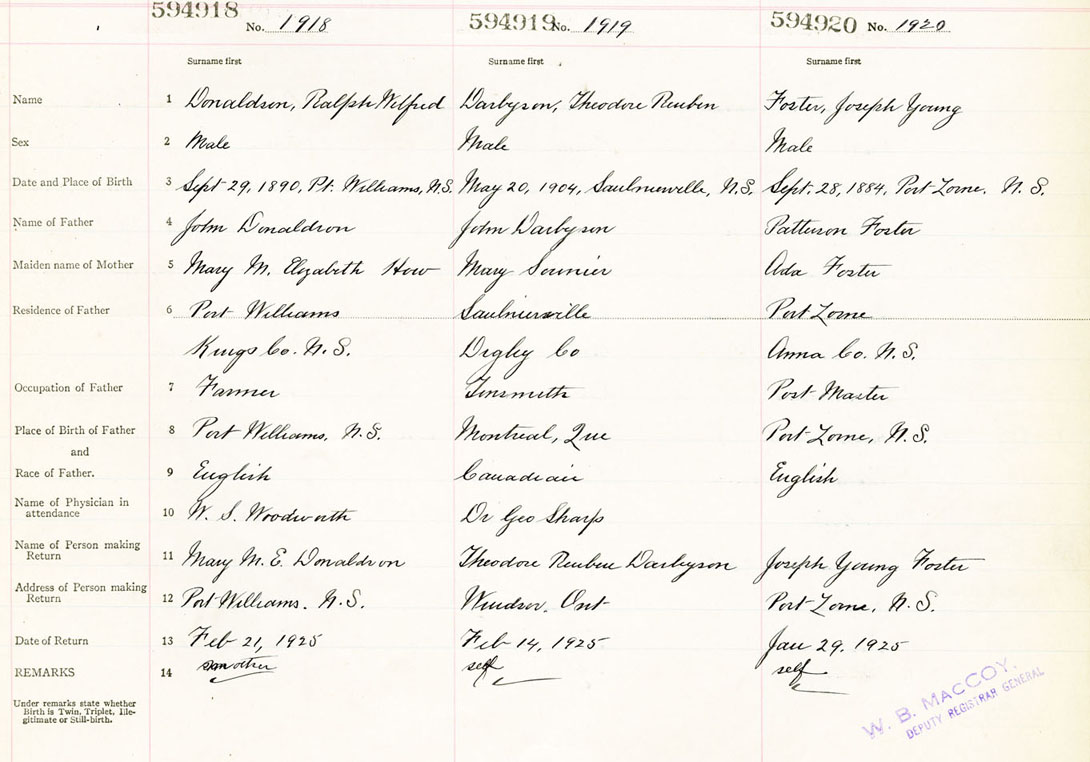 594918 No. 1918 594919 No. 1919 594920 No. 1920
Surname first Surname first Surname first
Name 1 Donaldson, Ralph Wilfred Darbyson, Theodore Reuben Foster, Joseph Young
Sex 2 Male Male Male
Date and Place of Birth 3 Sept 29, 1890, Pt. Williams, N.S. May 20, 1904, Saulnierville, N.S. Sept. 28, 1884, Port Lorne, N.S.
Name of Father 4 John Donaldson John Darbyson Patterson Foster
Maiden name of Mother 5 Mary M. Elizabeth How Mary Ada Foster
Residence of Father 6 Port Williams Saulnierville Port Lorne
Kings Co. N.S. Digby Co Anna Co. N.S.
Occupation of Father 7 Farmer Tinsmith Post Master
Place of Birth of Father 8 Port Williams, N.S. Montreal, Que Port Lorne, N.S.
and
Race of Father. 9 English Canadian English
Name of Physician in
attendance 10 W. S. Woodworth Dr Geo Sharp
Name of Person making
Return 11 Mary M. E. Donaldson Theodore Reuben Darbyson Joseph Young Foster
Address of Person making
Return 12 Port Williams. N.S. Windsor. Ont Port Lorne, N.S.
Date of Return 13 Feb 21, 1925 Feb 14, 1925 Jan 29, 1925
REMARKS 14 mother self self
Under remarks state whether
Birth is Twin, Triplet, Ille-
gitimate or Still-birth.
W. B. MACCOY.
DEPUTY REGISTRAR GENERAL